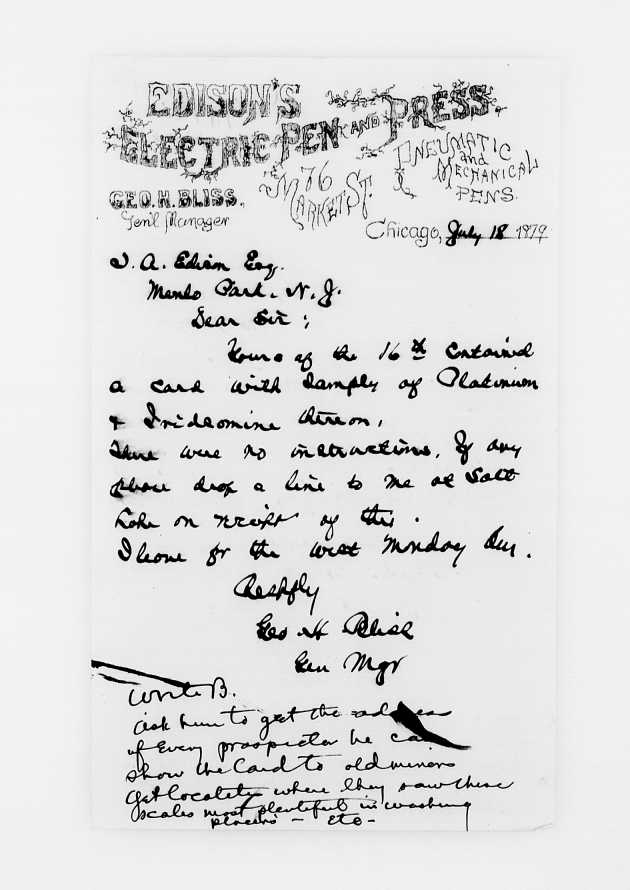 EDISON'S
ELECTRIC PEN AND PRESS
PNEUMATIC
and
MECHANICAL
PENS.
76
MARKET ST.
GEO. H. BLISS,
Gen'l Manager
Chicago, July 18 1879
T. A. Edison Esq.
Menlo Park, N. J.
Dear Sir;
Yours of the 16th contained
a card with samples of Platinum
& thereon,
There were no instructions. If any
please drop a line to me at Salt
Lake on receipt of this.
I leave for the west Monday
Respfly
Geo H Bliss
Gen Mgr
Write B.
ask him to get the address
of Every prospector he can
show the Card to old miners
Get where they saw these
scales most plentiful in washing
placers — etc —